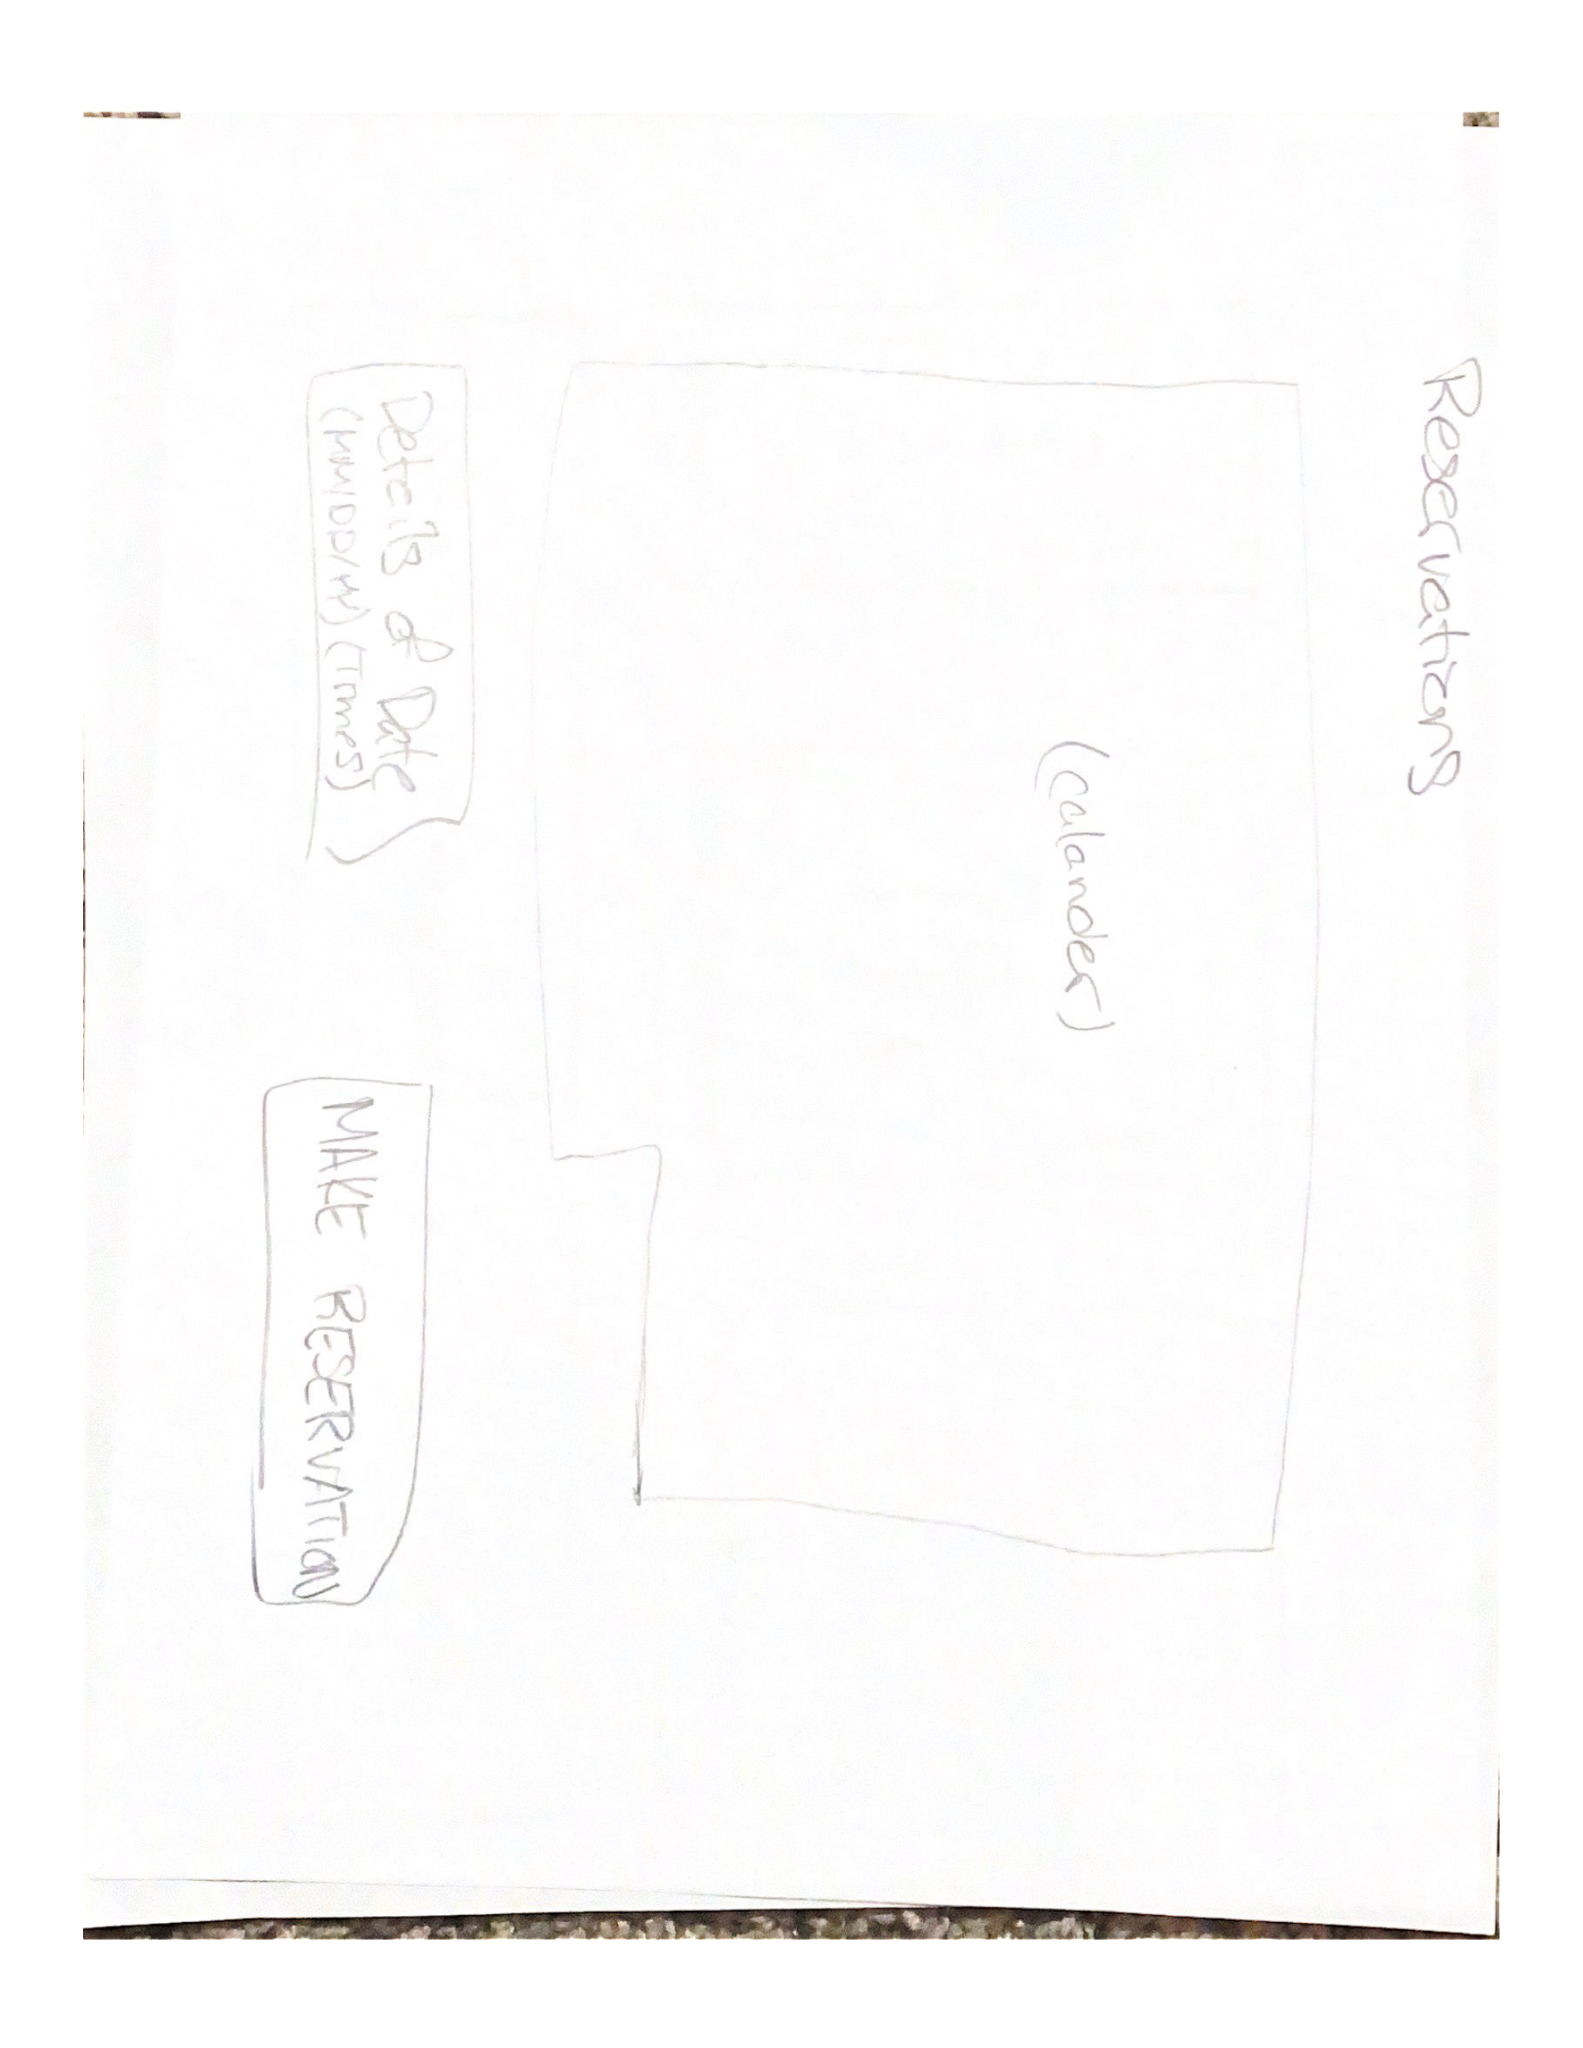 Reservations
(calander)
Details of Date
(MM/DD/YY) (Times)
MAKE RESERVATION